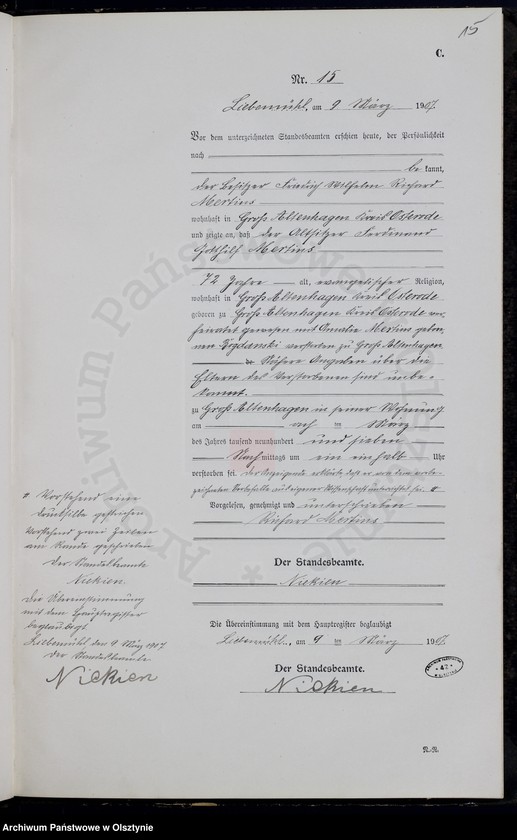 15
C.
Nr. 15
Liebemühl, am 9 März 1907.
Vor dem unterzeichneten Standesbeamten erschien heute, der Persönlichkeit
nach
be kannt,
der Besitzer Friedrich Wilhelm Richard
Mertins
wohnhaft in Groß Altenhagen Kreis Osterode
und zeigte an, daß der Altsitzer Ferdinand
Gotthilf Mertins
72 Jahre alt, evangelischer Religion,
wohnhaft in Groß Altenhagen Kreis Osterode
geboren zu Groß Altenhagen Kreis Osterode ver-
heiratet gewesen mit Amalie Mertins gebor-
nen verstorben zu Groß Altenhagen
Nähere Angaben über die
Eltern des Verstorbenen sind unbe-
kannt.
zu Groß Altenhagen in seiner Wohnung
am ten März
des Jahres tausend neunhundert und sieben
Nach mittags um ein einhalb Uhr
verstorben sei. Der Anzeigende erklärte daß er von dem vorbe-
zeichneten Sterbefalle aus eigener Wissenschaft unterrichtet sei.
Vorgelesen, genehmigt und unterschrieben
Richard Mertins
Der Standesbeamte.
Nickien
Die Übereinstimmung mit dem Hauptregister beglaubigt
Liebemühl, am 9 ten März 1907.
Der Standesbeamte.
Nickien
Vorstehend eine
Druksilbe gestrichen
Vorstehend zwei Zeilen
am Rande geschrieben
Der Standesbeamte.
Nickien.
Die Übereinstimmung
mit dem Hauptregister
beglaubigt
Liebemühl den 9 März 1907
Der Standesbeamte
Nickien
Archiwum Państwowe w Olsztynie